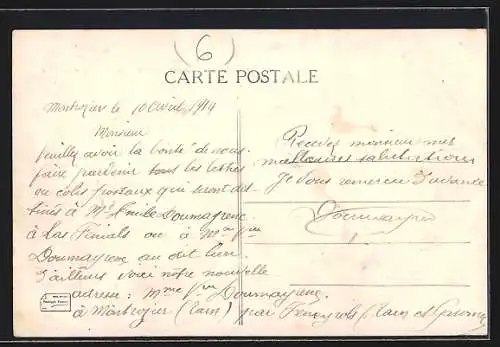 (6)
CARTE POSTALE
le 10 Avril 1914
Monsieur
Veuillez avoir la bonté de nous
faire parvenir tous les lettres
ou colis postaux qui seront des-
tinés à Mr Emile Doumayrenc
à Las Finials ou à Mme Vve
Doumayrenc au dit lieu
D'ailleurs voici notre nouvelle
adresse : Mme Vve Doumayrenc
à (Tarn) par (Tarn et Garonne)
Recevez monsieur mes
meilleures salutations
Je vous remercie d'avance